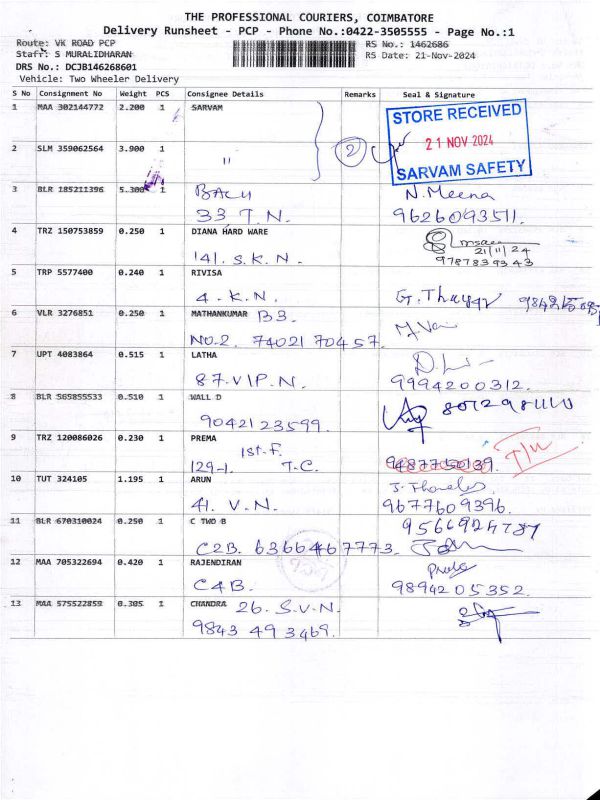 THE PROFESSIONAL COURIERS, COIMBATORE
Delivery Runsheet - PCP - Phone No.:0422-3505555 - Page No.:1
Route: VK ROAD PCP RS No.: 1462686
Staff: S MURALIDHARAN RS Date: 21-Nov-2024
DRS No.: DCJB146268601
Vehicle: Two Wheeler Delivery
S No Consignment No Weight PCS Consignee Details Remarks Seal & Signature
1 MAA 302144772 2.200 1 SARVAM
STORE RECEIVED
21 NOV 2024
SARVAM SAFETY
2 SLM 359062564 3.900 1 " 2
3 BLR 185211396 5.300 1 BALU N. Meena
33 T.N. 9626093511.
4 TRZ 150753859 0.250 1 DIANA HARD WARE
141. S.K.N. 21/11/24
9787839343
5 TRP 5577400 0.240 1 RIVISA
4. K.N.
6 VLR 3276851 0.250 1 MATHANKUMAR B3.
NO.2. 74021 70457.
7 UPT 4083864 0.515 1 LATHA
87.VIP.N. 9994200312.
8 BLR 565855533 0.510 1 WALL D
9042123599.
9 TRZ 120086026 0.230 1 PREMA
1st.F.
129-1. T-C. 9487750139.
10 TUT 324105 1.195 1 ARUN
41. V.N. 9677609396.
11 BLR 670310024 0.250 1 C TWO B
C2B. 6366467773.
12 MAA 705322694 0.420 1 RAJENDIRAN
C4B. 9894205352.
13 MAA 575522859 0.305 1 CHANDRA 26. S.V.N.
9843 493469.